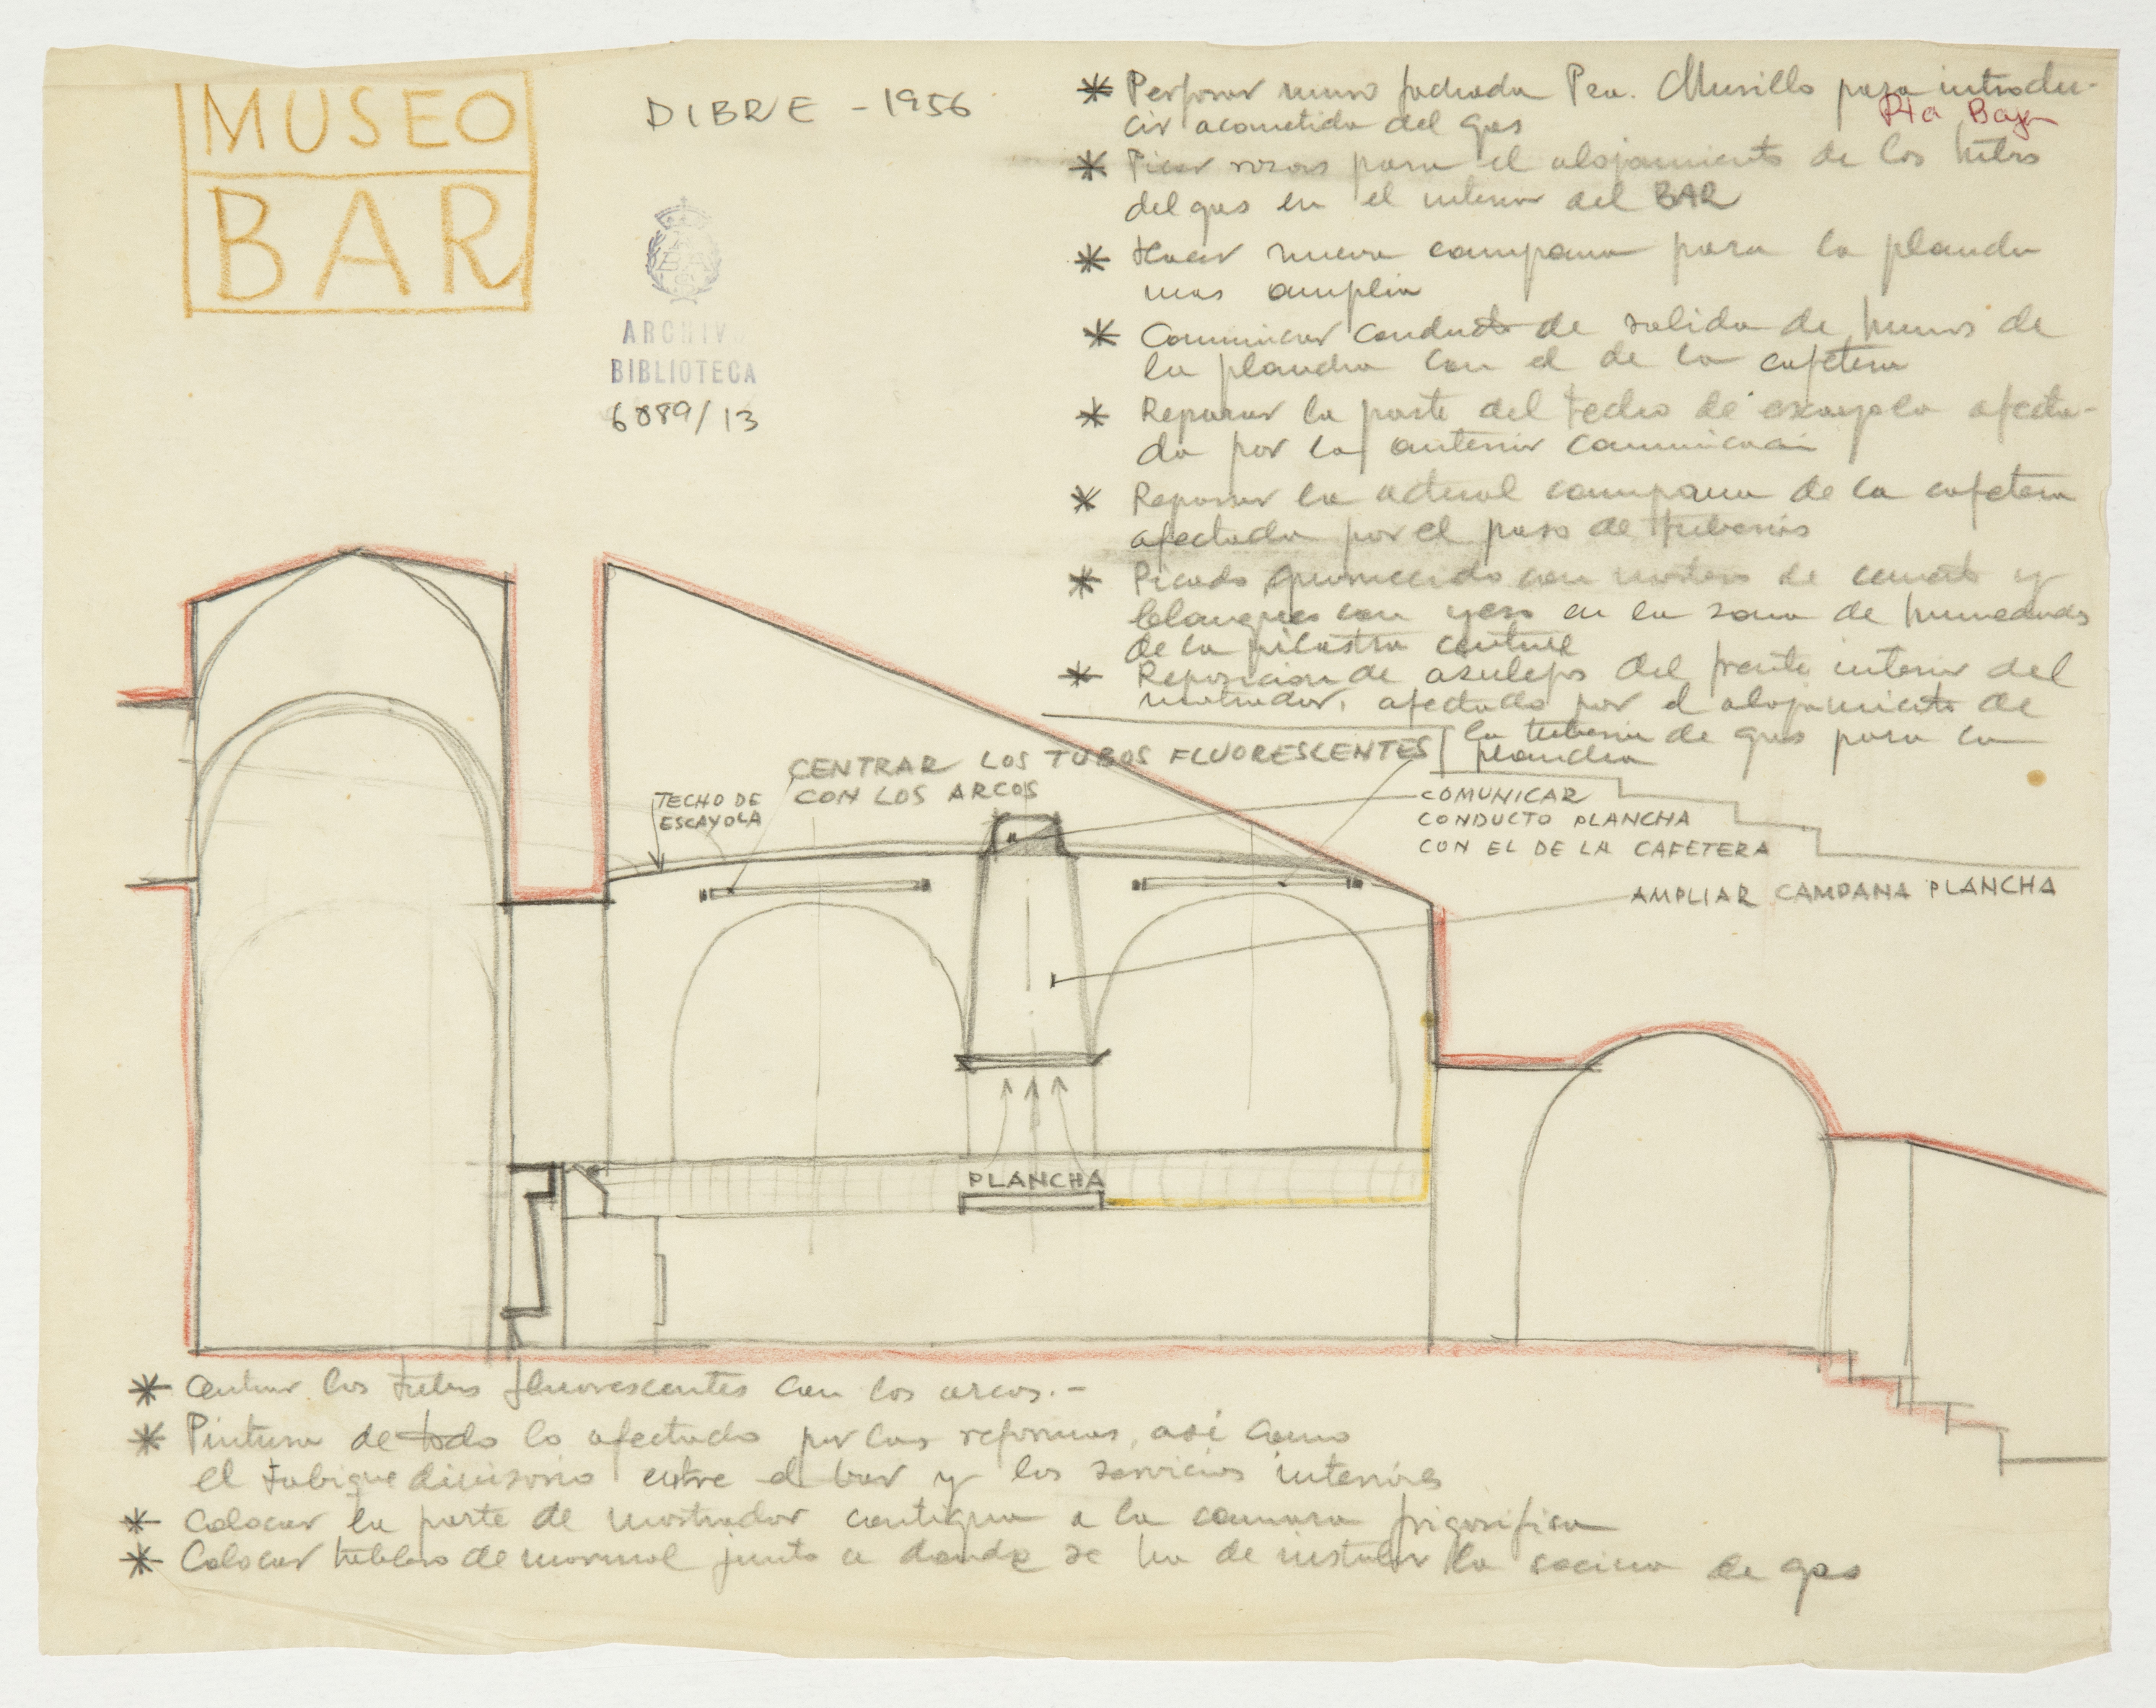 MUSEO
BAR
DIBRE - 1956
ARCHIVO
BIBLIOTECA
6089/13
* Perforar muro fachada Pza. Murillo para introdu-
Pta Baja
cir acometida del gas
* Picar rozas para el alojamiento de los tubos
del gas en el interior del BAR
* Hacer nueva campana para la plancha
mas amplia
* Comunicar conducto de salida de humos de
la plancha con el de la cafetera
* Reparar la parte del techo de escayola afecta-
da por la anterior comunicacion
* Reparar la actual campana de la cafetera
afectada por el paso de tuberias
* Picado guarnecido con mortero de cemento y
blanqueo con yeso en la zona de humedades
de la pilastra central
* Reposicion de azulejos del frente interior del
mostrador, afectado por el alojamiento de
la tuberia de gas para la
plancha
CENTRAR LOS TUBOS FLUORESCENTES
CON LOS ARCOS
TECHO DE
ESCAYOLA
COMUNICAR
CONDUCTO PLANCHA
CON EL DE LA CAFETERA
AMPLIAR CAMPANA PLANCHA
PLANCHA
* Centrar los tubos fluorescentes con los arcos.-
* Pintura de todo lo afectado por las reformas, asi como
el tabique divisorio entre el bar y los servicios interiores
* Colocar la parte de mostrador contigua a la camara frigorifica
* Colocar tablero de marmol junto a donde se ha de instalar la cocina de gas